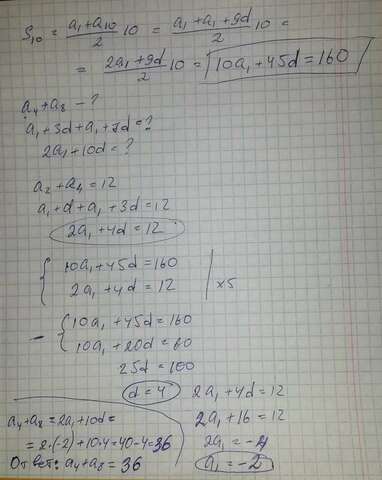 S₁₀ = (a₁ + a₁₀)/2 · 10 = (a₁ + a₁ + 9d)/2 · 10 =
= (2a₁ + 9d)/2 · 10 = 10a₁ + 45d = 160
a₄ + a₈ = ?
a₁ + 3d + a₁ + 7d = ?
2a₁ + 10d = ?
a₂ + a₄ = 12
a₁ + d + a₁ + 3d = 12
2a₁ + 4d = 12
{ 10a₁ + 45d = 160
2a₁ + 4d = 12 | x5
- { 10a₁ + 45d = 160
10a₁ + 20d = 60
25d = 100
d = 4
2a₁ + 4d = 12
2a₁ + 16 = 12
2a₁ = -4
a₁ = -2
a₄ + a₈ = 2a₁ + 10d =
= 2·(-2) + 10·4 = 40 - 4 = 36
Ответ: a₄ + a₈ = 36